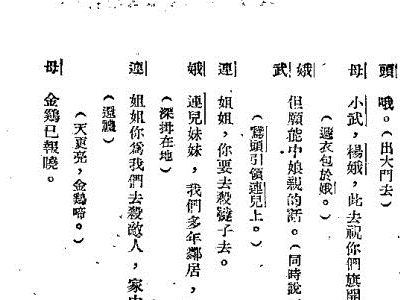 頭 哦。(出大門去)
母 小武，楊娥，此去祝你們旗開
(遞衣包於娥。)
娥
武 但願能中娘親的話。(同時說
(鴛頭引領連兒上。)
連 姐姐，你要去殺韃子去。
娥 連兒妹妹，我們多年鄰居，
(深拜在地)
連 姐姐你爲我們去殺敵人，家中
(還禮)
(天更亮，金鷄啼。)
母 金鷄已報曉。